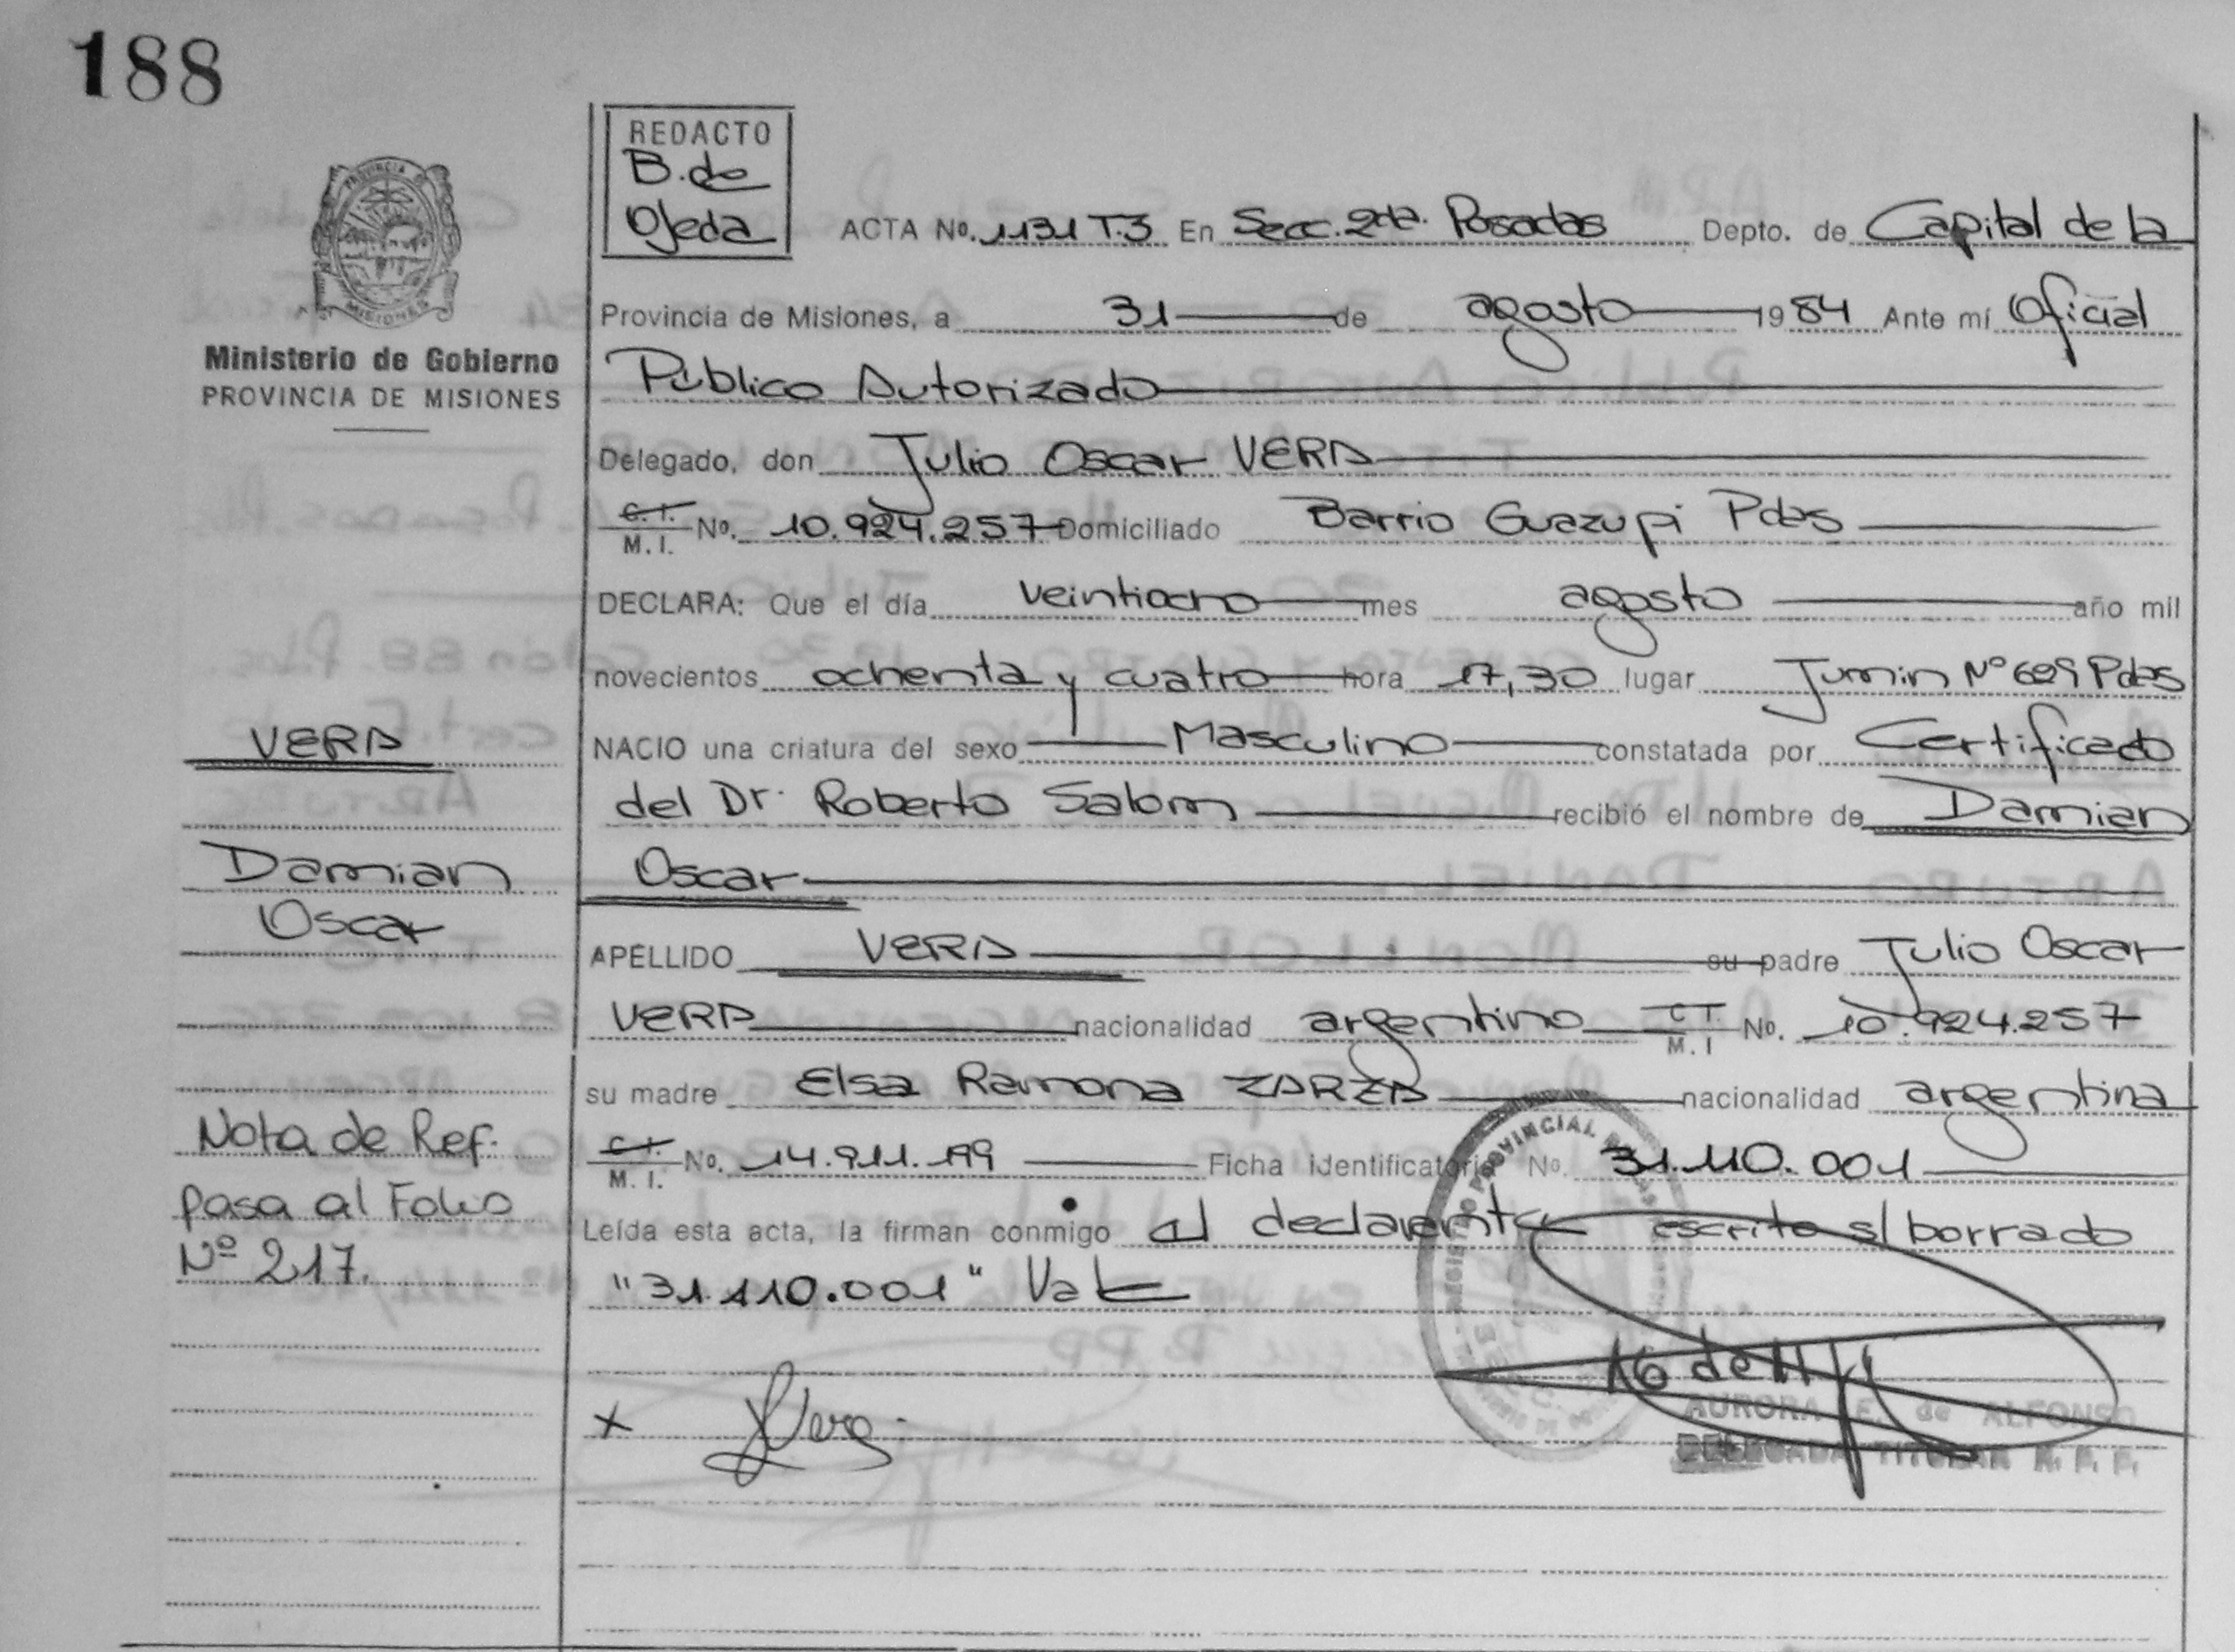 188
REDACTO
B. de
Ojeda
ACTA No. 1131 T.3 En Secc. 2da. Posadas Depto. de Capital de la
PROVINCIA DE
MISIONES
Provincia de Misiones, a 31 de agosto 1984 Ante mí Oficial
Ministerio de Gobierno
PROVINCIA DE MISIONES
Público Autorizado
Delegado, don Julio Oscar VERA
C. I.
M. I. No. 10.924.257 Domiciliado Barrio Guazupi Pdas
DECLARA: Que el día veintiocho mes agosto año mil
novecientos ochenta y cuatro hora 17,30 lugar Junin Nº 629 Pdas
VERA
NACIO una criatura del sexo Masculino constatada por Certificado
del Dr. Roberto Salom recibió el nombre de Damian
Damian
Oscar
Oscar
APELLIDO VERA su padre Julio Oscar
VERA nacionalidad argentino C I.
M. I No. 10.924.257
su madre Elsa Ramona ZARZA nacionalidad argentina
Nota de Ref.
C. I.
M. I. No. 14.911.199 Ficha identificatoria No. 31.110.001
pasa al Folio
Leída esta acta, la firman conmigo el declarante escrito s/ borrado
Nº 217.
"31.110.001" Vale
16 de
x Vera
AURORA E. de ALFONSO
DELEGADA TITULAR R. P. P.